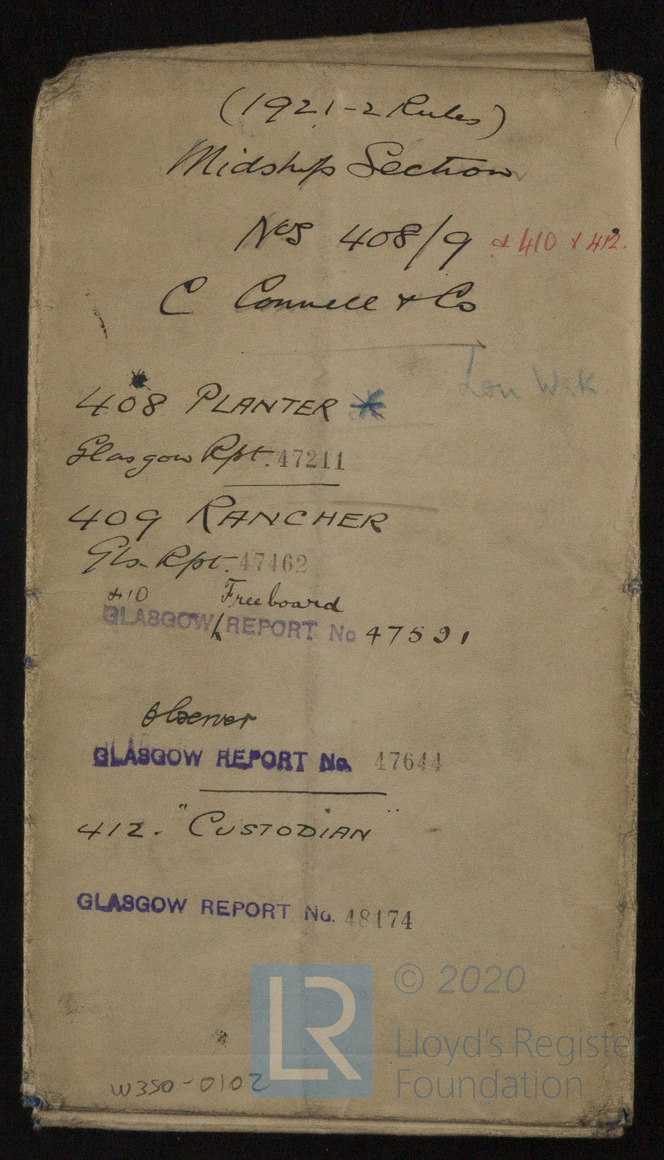 (1921-2 Rules)
Midship Section
Nos 408/9 & 410 & 412.
C Connell & Co
Lon Wk.
408 PLANTER *
Glasgow Rpt. 47211
409 RANCHER
Gls Rpt. 47462
410 Freeboard
GLASGOW REPORT No 47591
Observer
GLASGOW REPORT No. 47644
412. "CUSTODIAN"
GLASGOW REPORT No. 48174
LR
© 2020
Lloyd's Register
Foundation
W350-0102